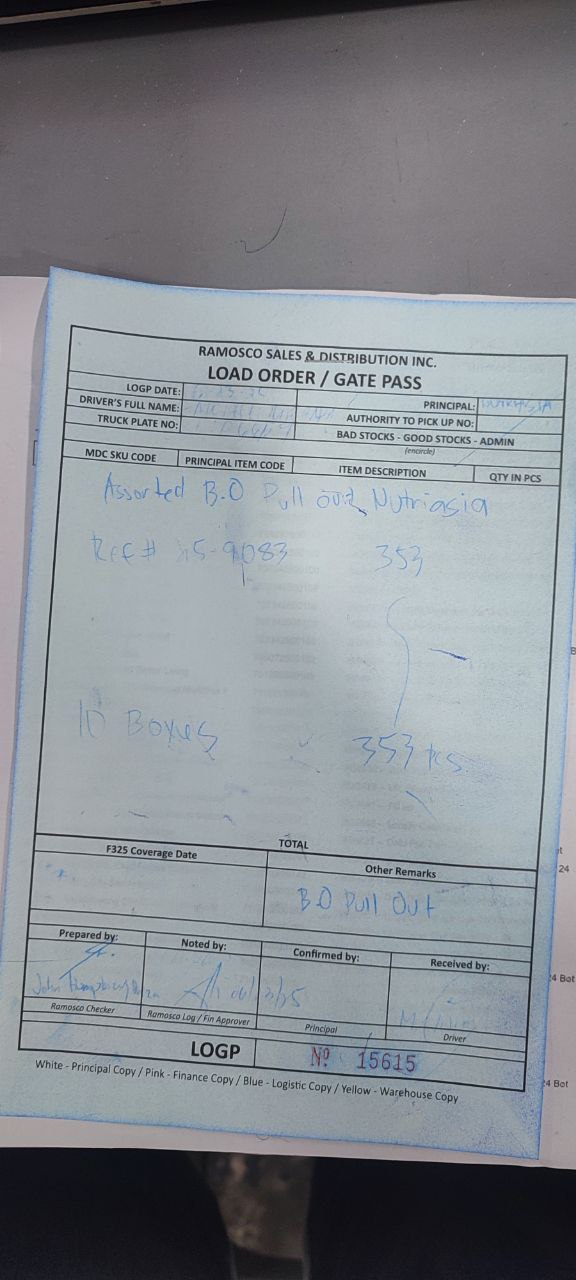 RAMOSCO SALES & DISTRIBUTION INC.
LOAD ORDER / GATE PASS
LOGP DATE:
PRINCIPAL: NUTRIASIA
DRIVER'S FULL NAME:
AUTHORITY TO PICK UP NO:
TRUCK PLATE NO:
BAD STOCKS - GOOD STOCKS - ADMIN
(encircle)
MDC SKU CODE PRINCIPAL ITEM CODE ITEM DESCRIPTION QTY IN PCS
Assorted B.O Pull out Nutriasia
Ref # 353
10 Boxes 353 pcs
TOTAL
F325 Coverage Date Other Remarks
B.O Pull Out
Prepared by: Noted by: Confirmed by: Received by:
John
Ramosco Checker Ramosco Log / Fin Approver Principal Driver
LOGP Nº 15615
White - Principal Copy / Pink - Finance Copy / Blue - Logistic Copy / Yellow - Warehouse Copy
24
4 Bot
4 Bot